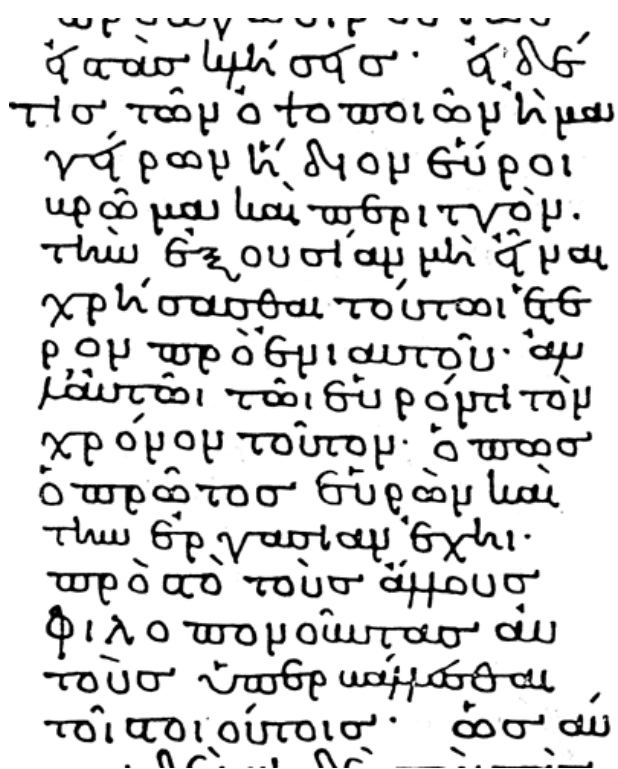 εἰ δέ
τις τῶν ὀψοποιῶν ἢ μα
γείρων ἴδιον εὕροι
βρῶμα καὶ περιττὸν.
τὴν ἐξουσίαν μὴ εἶναι
χρήσασθαι τούτωι ἕτε
ρον πρὸ ἐνιαυτοῦ· ἀλ
λ' αὐτῶι τῶι εὑρόντι τὸν
χρόνον τοῦτον· ὅπως
ὁ πρῶτος εὑρὼν καὶ
τὴν ἐργασίαν ἔχηι·
πρὸς τὸ τοὺς ἄλλους
φιλοπονοῦντας αὑ
τοὺς ὑπερβάλλεσθαι
τοῖς τοιούτοις· ὡσαύ